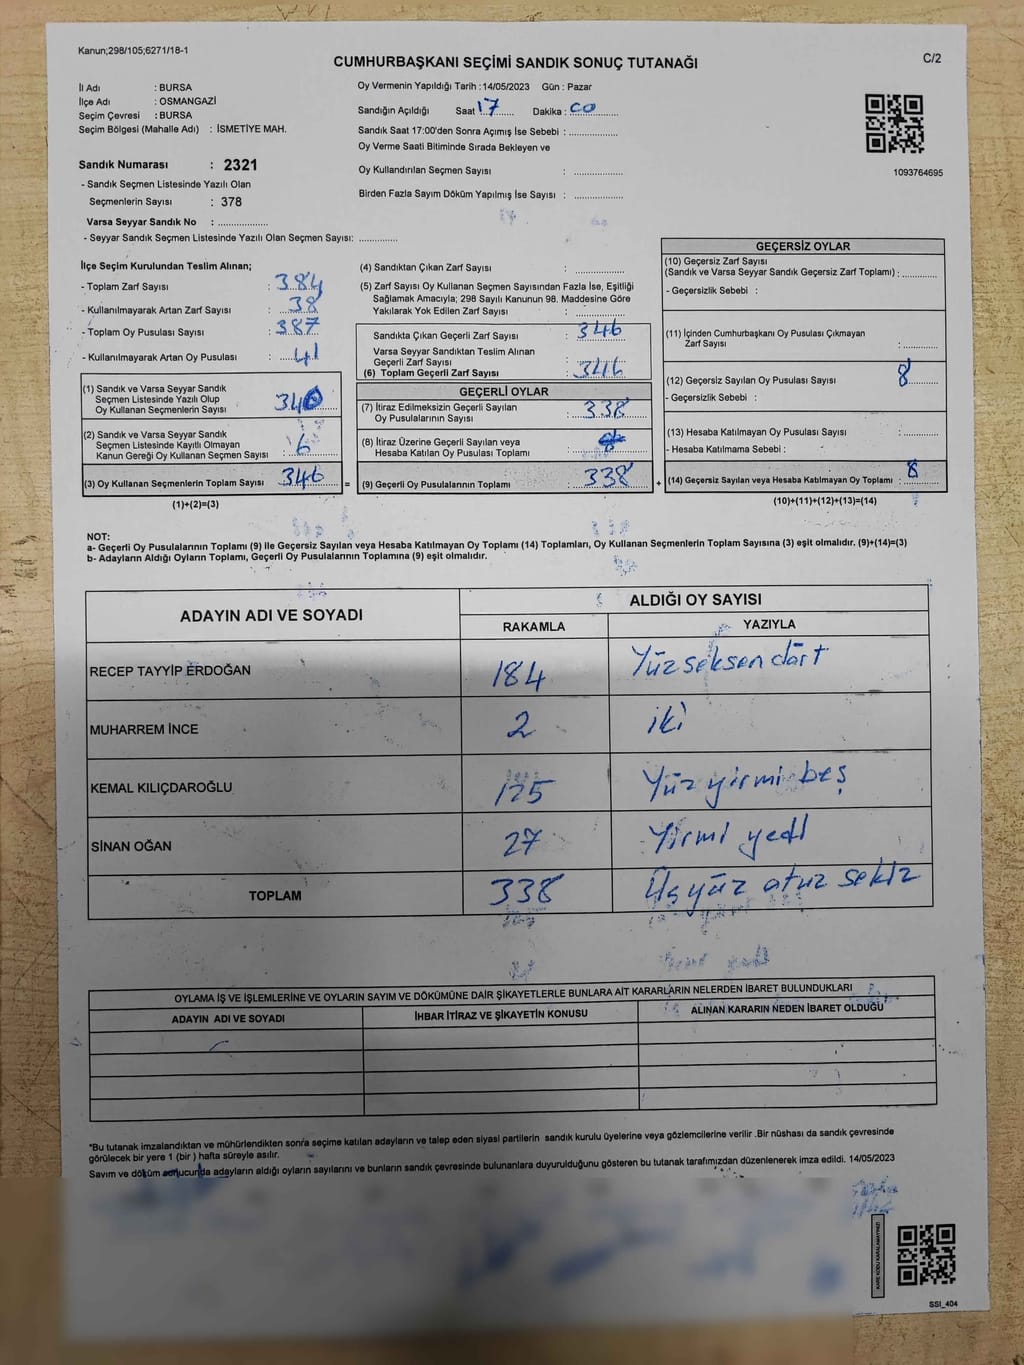 Kanun;298/105;6271/18-1
CUMHURBAŞKANI SEÇİMİ SANDIK SONUÇ TUTANAĞI
C/2
İl Adı : BURSA
İlçe Adı : OSMANGAZİ
Seçim Çevresi : BURSA
Seçim Bölgesi (Mahalle Adı) : İSMETİYE MAH.
Sandık Numarası : 2321
- Sandık Seçmen Listesinde Yazılı Olan
Seçmenlerin Sayısı : 378
Varsa Seyyar Sandık No : ..................
- Seyyar Sandık Seçmen Listesinde Yazılı Olan Seçmen Sayısı: .............
Oy Vermenin Yapıldığı Tarih :14/05/2023 Gün : Pazar
Sandığın Açıldığı Saat 17 Dakika : 00
Sandık Saat 17:00'den Sonra Açımış İse Sebebi : ................
Oy Verme Saati Bitiminde Sırada Bekleyen ve
Oy Kullandırılan Seçmen Sayısı : ................
Birden Fazla Sayım Döküm Yapılmış İse Sayısı : ................
1093764695
İlçe Seçim Kurulundan Teslim Alınan;
- Toplam Zarf Sayısı : 384
- Kullanılmayarak Artan Zarf Sayısı : 38
- Toplam Oy Pusulası Sayısı : 387
- Kullanılmayarak Artan Oy Pusulası : 41
(1) Sandık ve Varsa Seyyar Sandık
Seçmen Listesinde Yazılı Olup
Oy Kullanan Seçmenlerin Sayısı : 340
(2) Sandık ve Varsa Seyyar Sandık
Seçmen Listesinde Kayıtlı Olmayan
Kanun Gereği Oy Kullanan Seçmen Sayısı : 6
(3) Oy Kullanan Seçmenlerin Toplam Sayısı : 346 =
(1)+(2)=(3)
(4) Sandıktan Çıkan Zarf Sayısı : ................
(5) Zarf Sayısı Oy Kullanan Seçmen Sayısından Fazla İse, Eşitliği
Sağlamak Amacıyla; 298 Sayılı Kanunun 98. Maddesine Göre
Yakılarak Yok Edilen Zarf Sayısı : ................
Sandıkta Çıkan Geçerli Zarf Sayısı : 346
Varsa Seyyar Sandıktan Teslim Alınan
Geçerli Zarf Sayısı :
(6) Toplam Geçerli Zarf Sayısı : 346
GEÇERLİ OYLAR
(7) İtiraz Edilmeksizin Geçerli Sayılan
Oy Pusulalarının Sayısı : 338
(8) İtiraz Üzerine Geçerli Sayılan veya
Hesaba Katılan Oy Pusulası Toplamı :
(9) Geçerli Oy Pusulalarının Toplamı : 338 +
GEÇERSİZ OYLAR
(10) Geçersiz Zarf Sayısı
(Sandık ve Varsa Seyyar Sandık Geçersiz Zarf Toplamı) : ............
- Geçersizlik Sebebi :
(11) İçinden Cumhurbaşkanı Oy Pusulası Çıkmayan
Zarf Sayısı : ............
(12) Geçersiz Sayılan Oy Pusulası Sayısı : 8
- Geçersizlik Sebebi :
(13) Hesaba Katılmayan Oy Pusulası Sayısı : ............
- Hesaba Katılmama Sebebi :
(14) Geçersiz Sayılan veya Hesaba Katılmayan Oy Toplamı : 8
(10)+(11)+(12)+(13)=(14)
NOT:
a- Geçerli Oy Pusulalarının Toplamı (9) ile Geçersiz Sayılan veya Hesaba Katılmayan Oy Toplamı (14) Toplamları, Oy Kullanan Seçmenlerin Toplam Sayısına (3) eşit olmalıdır. (9)+(14)=(3)
b- Adayların Aldığı Oyların Toplamı, Geçerli Oy Pusulalarının Toplamına (9) eşit olmalıdır.
ADAYIN ADI VE SOYADI
ALDIĞI OY SAYISI
RAKAMLA YAZIYLA
RECEP TAYYİP ERDOĞAN 184 Yüz seksen dört
MUHARREM İNCE 2 iki
KEMAL KILIÇDAROĞLU 125 Yüz yirmi beş
SİNAN OĞAN 27 Yirmi yedi
TOPLAM 338 Üç yüz otuz sekiz
OYLAMA İŞ VE İŞLEMLERİNE VE OYLARIN SAYIM VE DÖKÜMÜNE DAİR ŞİKAYETLERLE BUNLARA AİT KARARLARIN NELERDEN İBARET BULUNDUKLARI
ADAYIN ADI VE SOYADI İHBAR İTİRAZ VE ŞİKAYETİN KONUSU ALINAN KARARIN NEDEN İBARET OLDUĞU
*Bu tutanak imzalandıktan ve mühürlendikten sonra seçime katılan adayların ve talep eden siyasi partilerin sandık kurulu üyelerine veya gözlemcilerine verilir .Bir nüshası da sandık çevresinde
görülecek bir yere 1 (bir ) hafta süreyle asılır.
Sayım ve döküm sonucunda adayların aldığı oyların sayılarını ve bunların sandık çevresinde bulunanlara duyurulduğunu gösteren bu tutanak tarafımızdan düzenlenerek imza edildi. 14/05/2023
KARE KODU KARALAMAYINIZ!
SSI_404